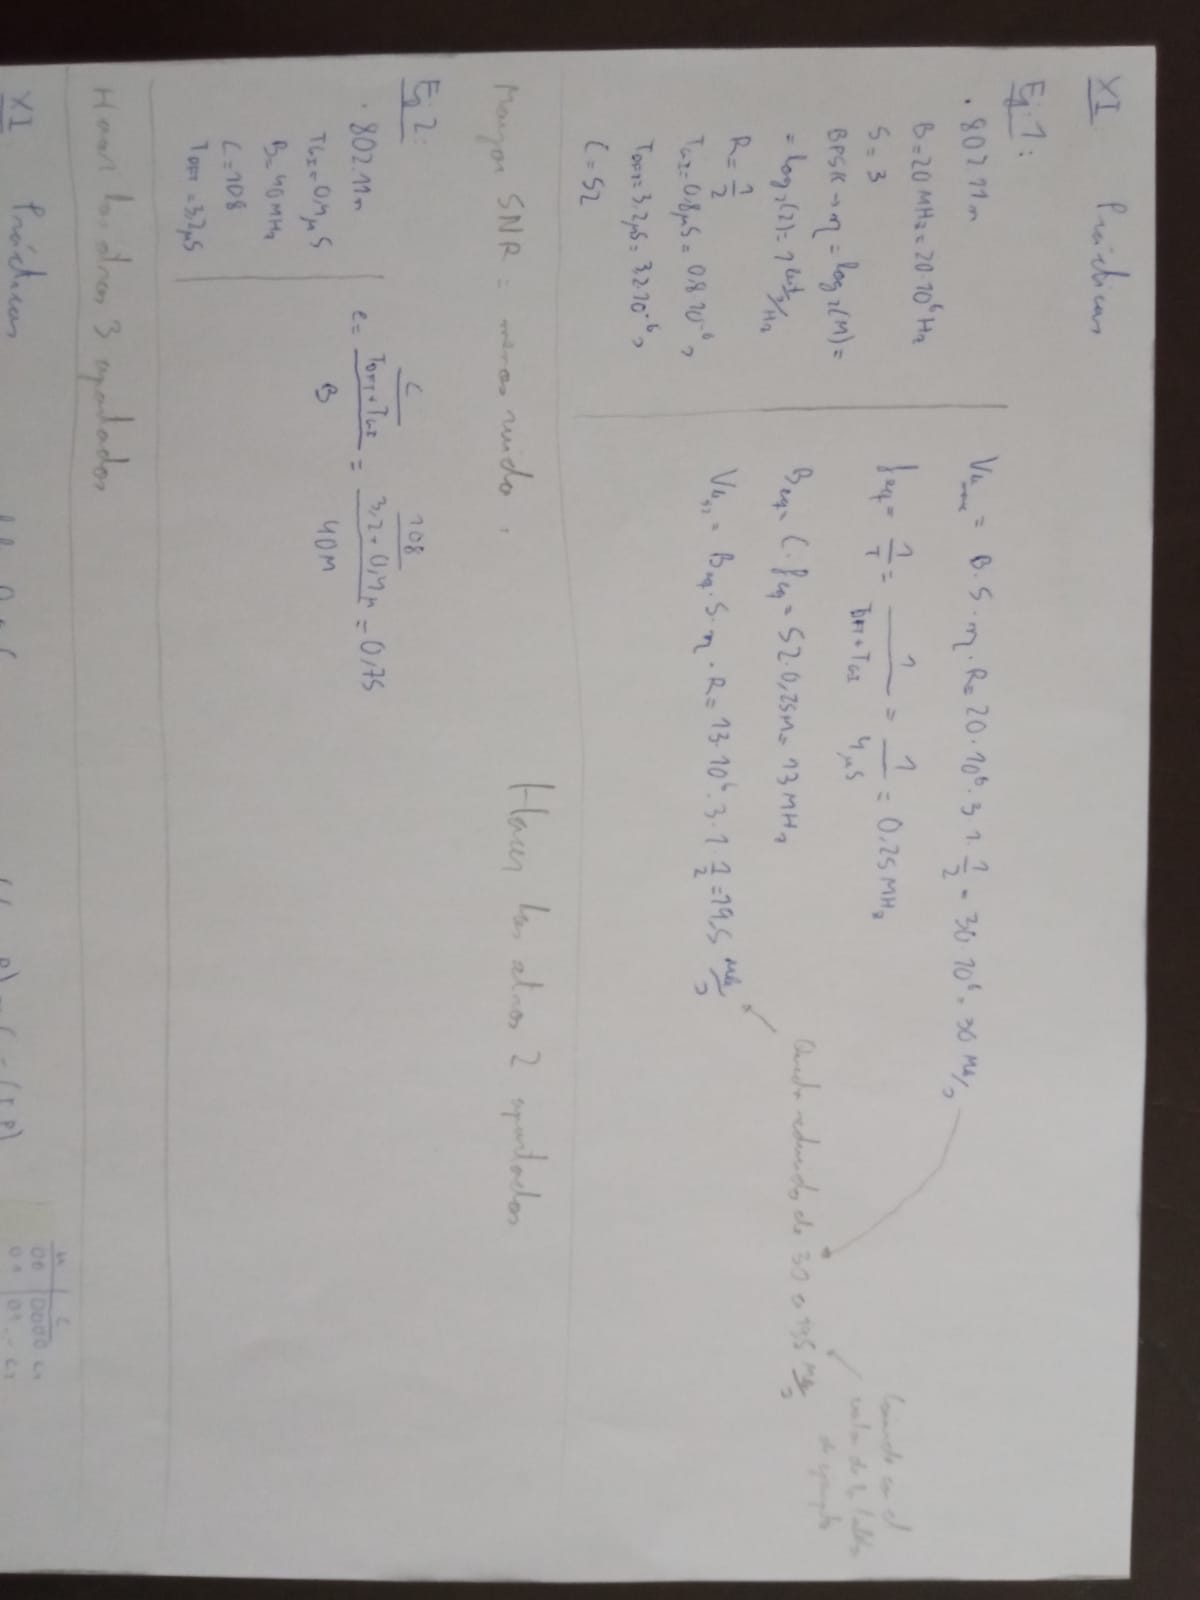 XI Prácticas
Ej. 1:
· 802.11n
B = 20 MHz = 20·10⁶ Hz
S = 3
BPSK → η = log₂(M) =
= log₂(2) = 1 bit/s/Hz
R = 1/2
T_GI = 0,8 μS = 0,8·10⁻⁶ s
T_DFT = 3,2 μS = 3,2·10⁻⁶ s
C = 52
V_max = B·S·η·R = 20·10⁶·3·1·1/2 = 30·10⁶ = 30 Mb/s
f_eq = 1/T = 1/(T_DFT + T_GI) = 1/4μS = 0,25 MHz
B_eq = C·f_eq = 52·0,25M = 13 MHz
V = B_eq·S·η·R = 13·10⁶·3·1·1/2 = 19,5 Mb/s
Queda reducido de 30 a 19,5 Mb/s
Coincide con el
valor de la tabla
de ejemplo
Mayor SNR = menos ruido.
Hacer los otros 2 apartados
Ej 2:
· 802.11n
T_GI = 0,4 μS
B = 40 MHz
C = 108
T_DFT = 3,2 μS
e = (C/(T_DFT + T_GI))/B = (108/(3,2 + 0,4 μ))/40M = 0,75
Hacer los otros 3 apartados
XI Prácticas
00 0000 C₁
01 01